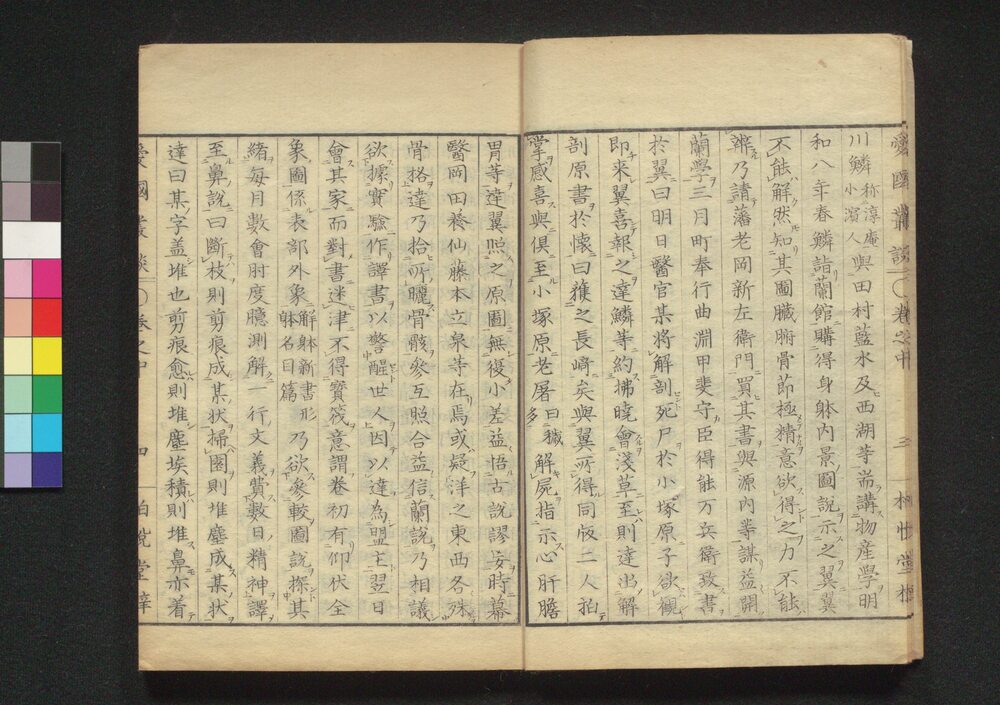 愛國叢談〇卷之中 三
川鱗 称淳庵小濱人 與田村藍水及西湖等耑講物産學明
和八年春鱗詣蘭館購得身躰内景圖説示之翼翼
不能解然知其圖臓腑骨節極精意欲得之力不能
辨乃請藩老岡新左衛門買其書與源内等謀益開
蘭學三月町奉行曲淵甲斐守臣得能万兵衛致書
於翼曰明日醫官某將解剖死尸於小塚原子欲觀
即来翼喜報之達鱗等約拂曉會淺草至則達出解
剖原書於懐曰獲之長﨑矣與翼所得同版二人拍
掌感喜與倶至小塚原老屠 曰穢多 解屍指示心肝膽
胃等達翼照之原圖無復小差益悟古説謬妄時幕
醫岡田養仙藤本立泉等在焉或疑洋之東西各殊
骨格達乃拾所曬骨骸參互照合益信蘭説乃相議
欲據實驗作譯書以警醒世人因以達為盟主翌日
會其家而對書迷津不得寳筏意謂卷初有仰伏全
象圖係表部外象 解躰新書形躰名目篇 乃欲參較圖説探其
緒毎月數會肘度臆測解一行文義費數日精神譯
至鼻説曰斷枝則剪痕成某状掃園則堆塵成某状
達曰某字盖堆也剪痕愈則堆塵埃積則堆鼻亦着
愛國叢談〇卷之中 四